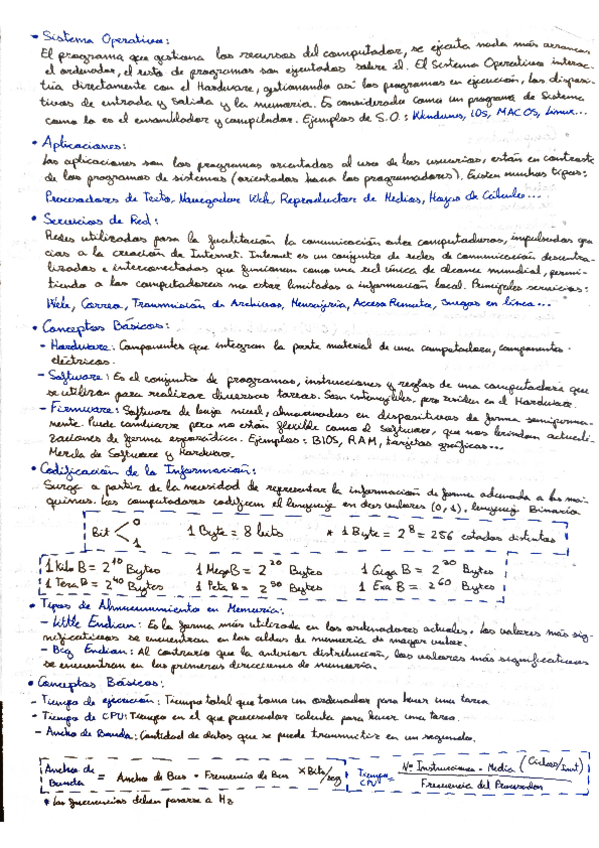 • Sistema Operativo:
El programa que gestiona los recursos del computador, se ejecuta nada más arrancar
el ordenador, el resto de programas son ejecutados sobre él. El Sistema Operativo interac-
túa directamente con el Hardware, gestionando así los programas en ejecución, los disposi-
tivos de entrada y salida y la memoria. Es considerado como un programa de Sistema
como lo es el ensamblador y compilador. Ejemplos de S.O.: Windows, iOS, MAC OS, Linux...
• Aplicaciones:
Las aplicaciones son los programas orientados al uso de los usuarios, están en contraste
de los programas de sistemas (orientados hacia los programadores). Existen muchos tipos:
Procesadores de Texto, Navegador Web, Reproductor de Medios, Hojas de Cálculo...
• Servicios de Red:
Redes utilizadas para la facilitación la comunicación entre computadoras, impulsadas gra-
cias a la creación de Internet. Internet es un conjunto de redes de comunicación descentra-
lizadas e interconectadas que funcionan como una red única de alcance mundial, permi-
tiendo a los computadores no estar limitados a información local. Principales servicios:
Web, Correo, Transmisión de Archivos, Mensajería, Acceso Remoto, Juegos en línea...
• Conceptos Básicos:
- Hardware: Componentes que integran la parte material de una computadora, componentes
eléctricos.
- Software: Es el conjunto de programas, instrucciones y reglas de una computadora que
se utilizan para realizar diversas tareas. Son intangibles, pero residen en el Hardware.
- Firmware: Software de bajo nivel, almacenados en dispositivos de forma semiperma-
nente. Puede cambiarse pero no están flexible como el Software, que nos brindan actuali-
zaciones de forma esporádica. Ejemplos: BIOS, RAM, tarjetas gráficas...
Mezcla de Software y Hardware.
• Codificación de la Información:
Surge a partir de la necesidad de representar la información de forma adecuada a las má-
quinas. Las computadores codifican el lenguaje en dos valores (0, 1), lenguaje Binario
Bit < 0 1 1 Byte = 8 bits * 1 Byte = 2^8 = 256 estados distintos
1 Kilo B = 2^10 Bytes 1 Mega B = 2^20 Bytes 1 Giga B = 2^30 Bytes
1 Tera B = 2^40 Bytes 1 Peta B = 2^50 Bytes 1 Exa B = 2^60 Bytes
• Tipos de Almacenamiento en Memoria:
- Little Endian: Es la forma más utilizada en los ordenadores actuales. Los valores más sig-
nificativos se encuentran en las celdas de memoria de mayor valor.
- Big Endian: Al contrario que la anterior distribución, los valores más significativos
se encuentran en las primeras direcciones de memoria.
• Conceptos Básicos:
- Tiempo de ejecución: Tiempo total que toma un ordenador para hacer una tarea
- Tiempo de CPU: Tiempo en el que procesador calcula para hacer una tarea.
- Ancho de Banda: Cantidad de datos que se puede transmitir en un segundo.
Ancho de Banda = Ancho de Bus · Frecuencia de Bus × Bits/seg Tiempo CPU = Nº Instrucciones · Media (Ciclos/Inst) / Frecuencia del Procesador
* Las frecuencias deben pasarse a Hz